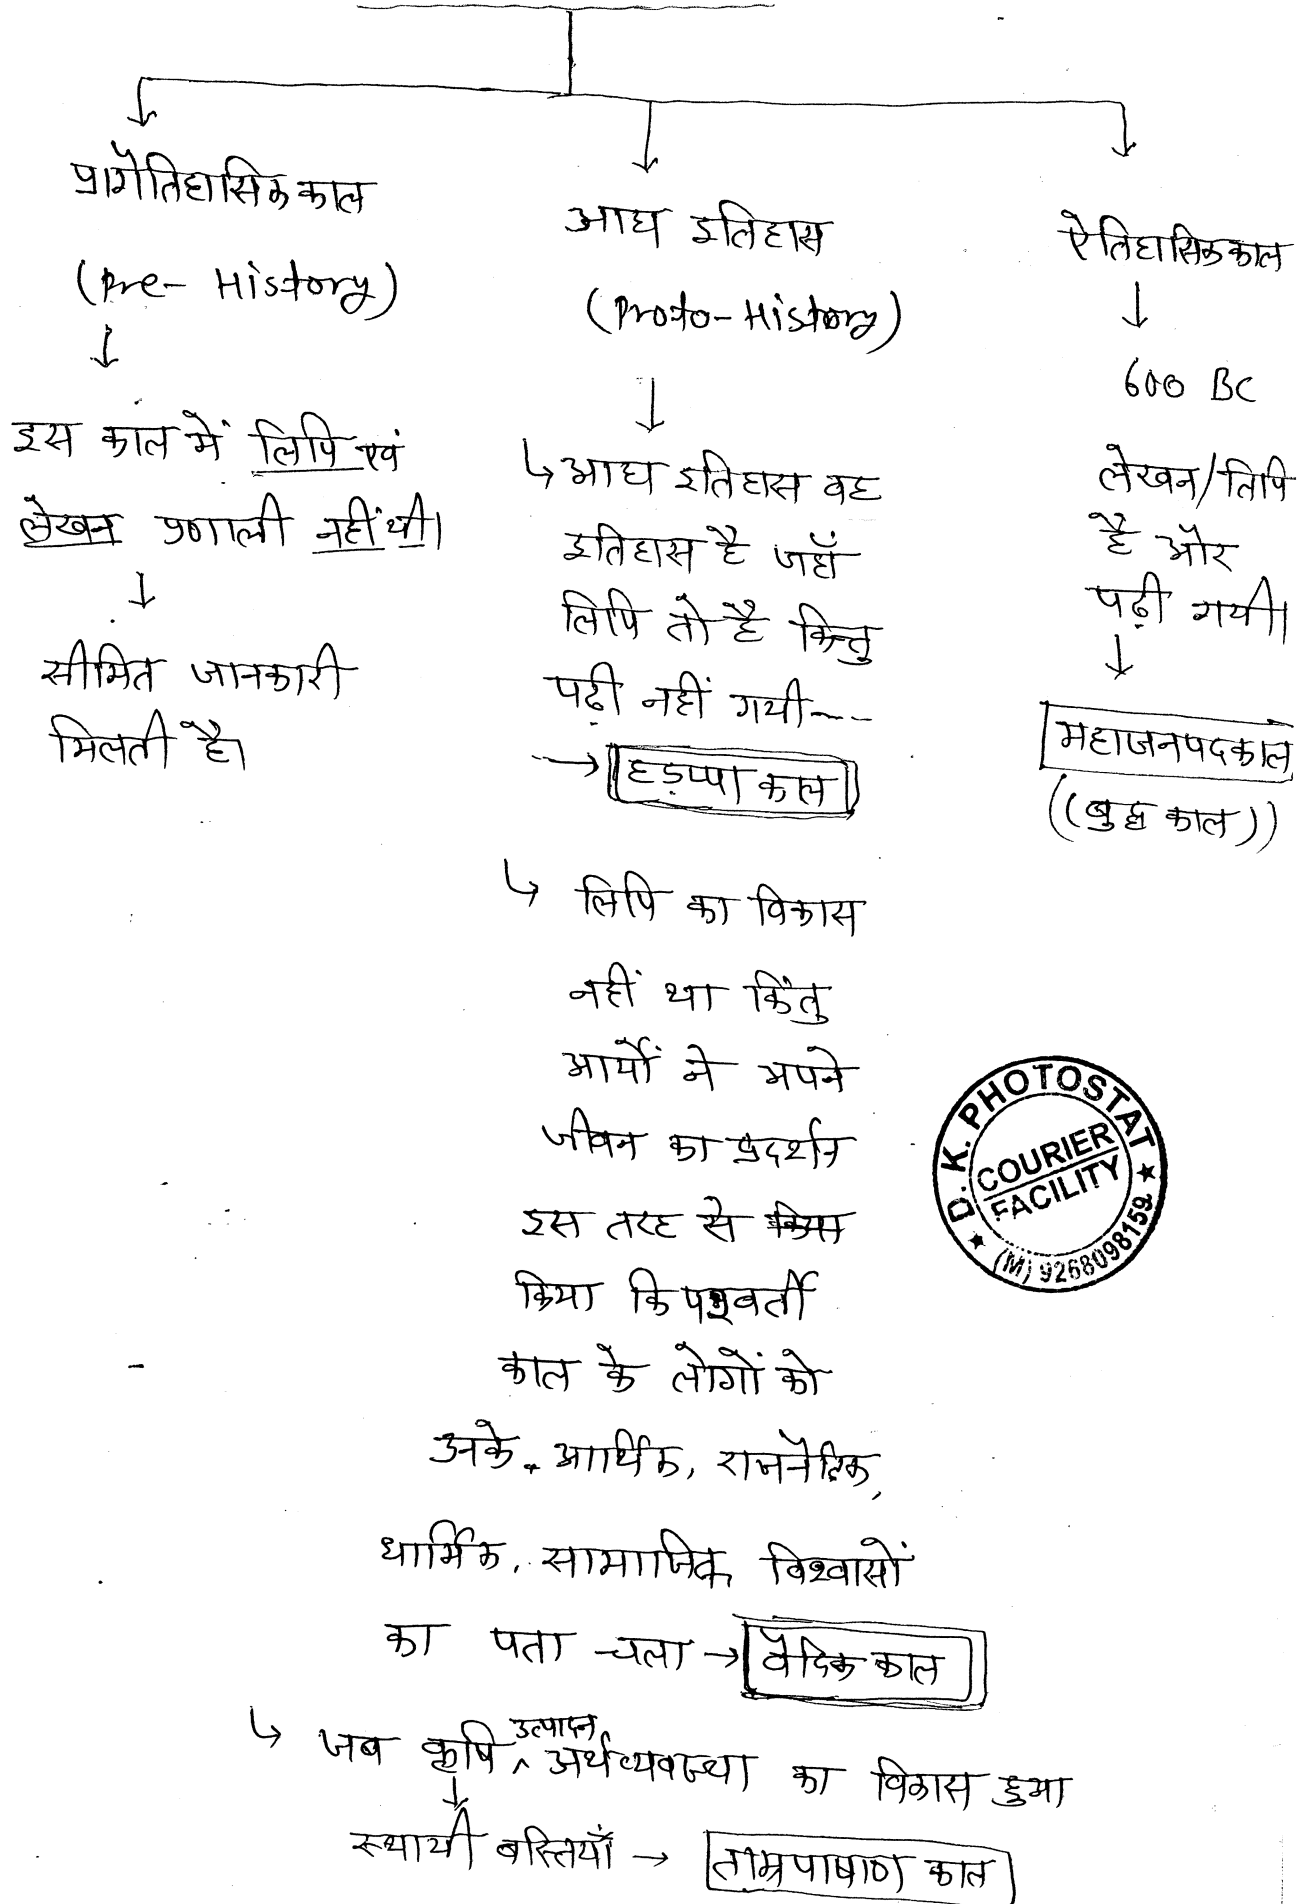 प्रागैतिहासिक काल
(Pre- History)
इस काल में लिपि एवं
लेखन प्रणाली नहीं थी।
सीमित जानकारी
मिलती है।
आद्य इतिहास
(Proto-History)
आद्य इतिहास वह
इतिहास है जहाँ
लिपि तो है किन्तु
पढ़ी नहीं गयी----
→ हड़प्पा काल
लिपि का विकास
नहीं था किंतु
आर्यों ने अपने
जीवन का प्रदर्शन
इस तरह से
किया कि परवर्ती
काल के लोगों को
उनके आर्थिक, राजनैतिक,
धार्मिक, सामाजिक विश्वासों
का पता चला → वैदिक काल
जब कृषि उत्पादन अर्थव्यवस्था का विकास हुआ
स्थायी बस्तियाँ → ताम्रपाषाण काल
ऐतिहासिक काल
600 BC
लेखन/लिपि
है और
पढ़ी गयी।
महाजनपद काल
((बुद्ध काल))
D. K. PHOTOSTAT
COURIER
FACILITY
(M) 9268098159